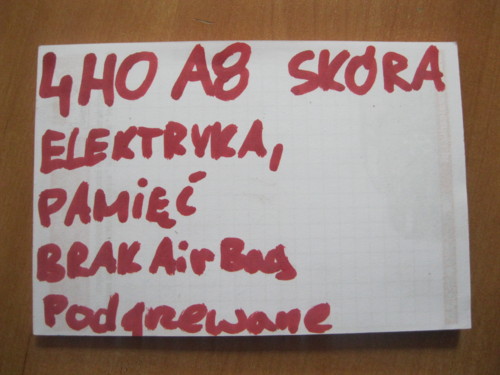 4HO A8 SKÓRA
ELEKTRYKA,
PAMIĘĆ
BRAK AirBag
Podgrzewane